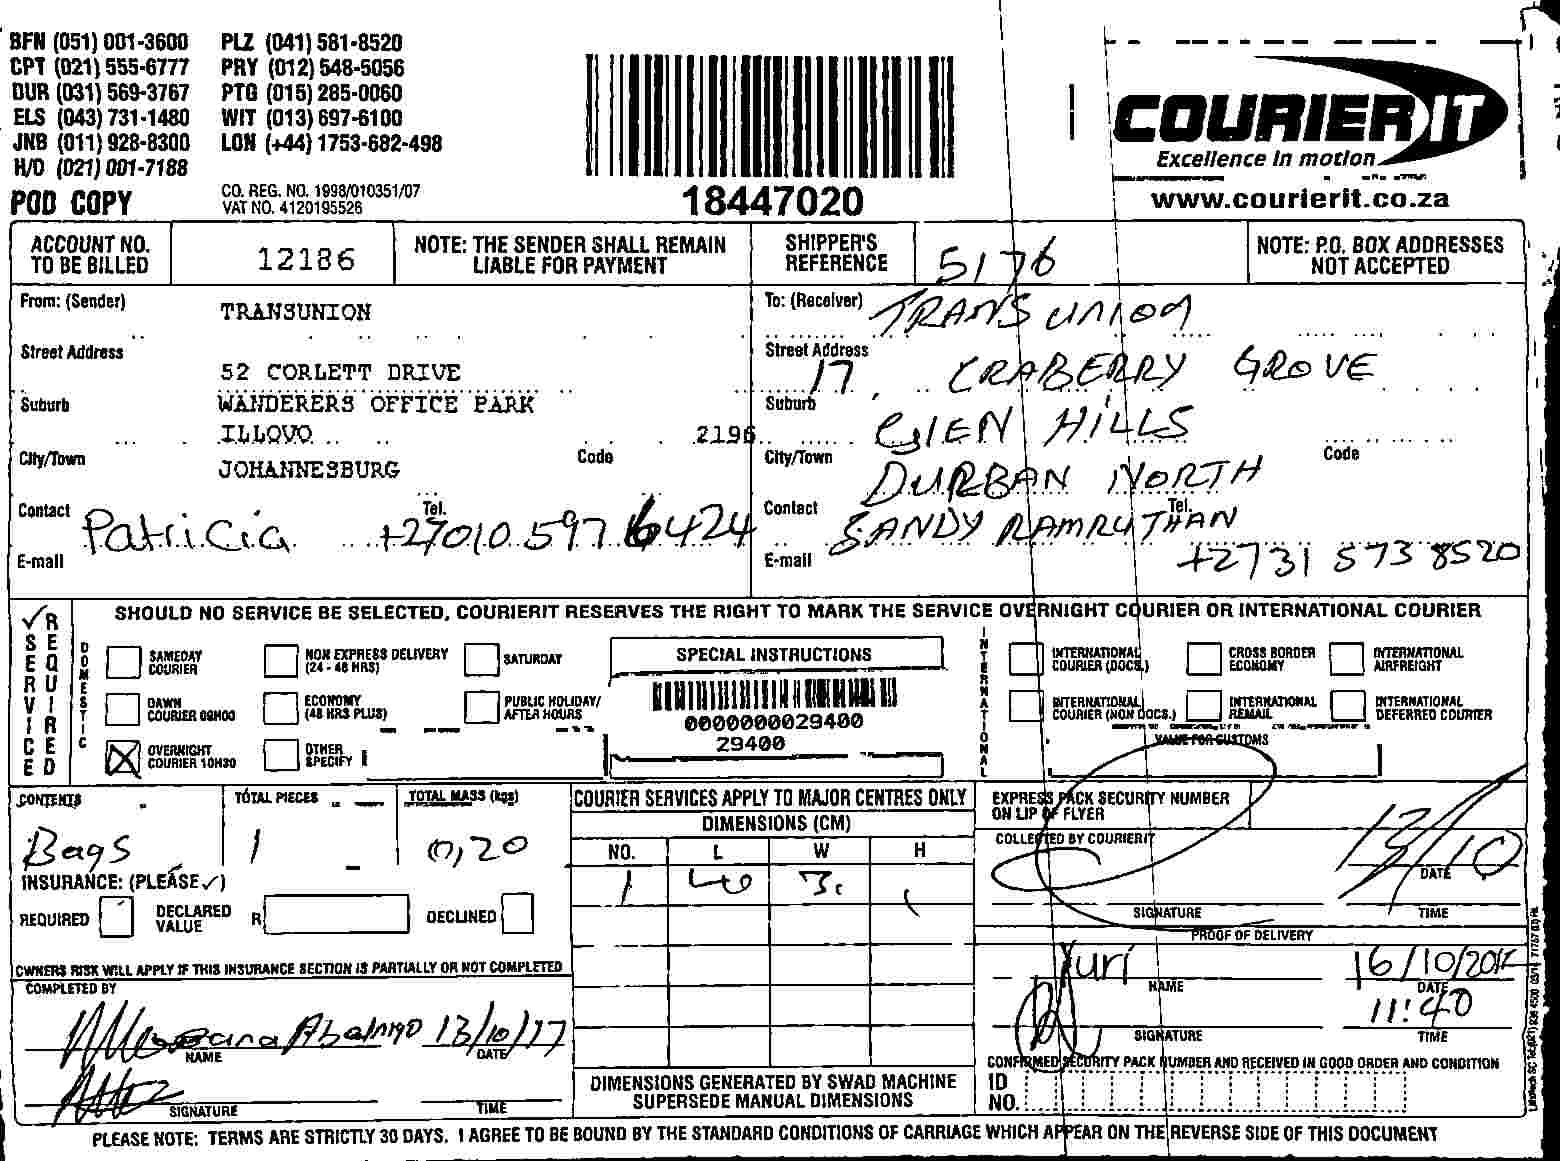 BFN (051) 001-3600 PLZ (041) 581-8520
CPT (021) 555-6777 PRY (012) 548-5056
DUR (031) 569-3767 PTG (015) 285-0060
ELS (043) 731-1480 WIT (013) 697-6100
JNB (011) 928-8300 LON (+44) 1753-682-498
H/O (021) 001-7188
POD COPY
CO. REG. NO. 1998/010351/07
VAT NO. 4120195526
18447020
COURIER IT
Excellence in motion
www.courierit.co.za
ACCOUNT NO. TO BE BILLED
12186
NOTE: THE SENDER SHALL REMAIN LIABLE FOR PAYMENT
SHIPPER'S REFERENCE
5176
NOTE: P.O. BOX ADDRESSES NOT ACCEPTED
From: (Sender) TRANSUNION
Street Address
52 CORLETT DRIVE
Suburb WANDERERS OFFICE PARK
ILLOVO 2196
City/Town JOHANNESBURG Code
Contact Patricia Tel. +27010 597 6424
E-mail
To: (Receiver) TRANSUNION
Street Address 17, CRABERRY GROVE
Suburb GLEN HILLS
City/Town DURBAN NORTH Code
Contact SANDY RAMRUTHAN Tel.
E-mail +2731 573 8520
SERVICE REQUIRED
SHOULD NO SERVICE BE SELECTED, COURIERIT RESERVES THE RIGHT TO MARK THE SERVICE OVERNIGHT COURIER OR INTERNATIONAL COURIER
DOMESTIC
SAMEDAY COURIER
NON EXPRESS DELIVERY (24 - 48 HRS)
SATURDAY
DAWN COURIER 09H00
ECONOMY (48 HRS PLUS)
PUBLIC HOLIDAY/ AFTER HOURS
OVERNIGHT COURIER 10H30
OTHER SPECIFY
SPECIAL INSTRUCTIONS
0000000029400
29400
INTERNATIONAL
INTERNATIONAL COURIER (DOCS.)
CROSS BORDER ECONOMY
INTERNATIONAL AIRFREIGHT
INTERNATIONAL COURIER (NON DOCS.)
INTERNATIONAL REMAIL
INTERNATIONAL DEFERRED COURIER
VALUE FOR CUSTOMS
CONTENTS
Bags
TOTAL PIECES
1
TOTAL MASS (kgs)
0,20
INSURANCE: (PLEASE ✓)
REQUIRED DECLARED VALUE R DECLINED
OWNERS RISK WILL APPLY IF THIS INSURANCE SECTION IS PARTIALLY OR NOT COMPLETED
COMPLETED BY
13/10/17
NAME DATE
SIGNATURE TIME
COURIER SERVICES APPLY TO MAJOR CENTRES ONLY
DIMENSIONS (CM)
NO. L W H
1 40
DIMENSIONS GENERATED BY SWAD MACHINE SUPERSEDE MANUAL DIMENSIONS
EXPRESS PACK SECURITY NUMBER ON LIP OF FLYER
COLLECTED BY COURIERIT
13/10
DATE
SIGNATURE TIME
PROOF OF DELIVERY
Yuri
NAME DATE
11:40
SIGNATURE TIME
CONFIRMED SECURITY PACK NUMBER AND RECEIVED IN GOOD ORDER AND CONDITION
ID NO.
PLEASE NOTE: TERMS ARE STRICTLY 30 DAYS. I AGREE TO BE BOUND BY THE STANDARD CONDITIONS OF CARRIAGE WHICH APPEAR ON THE REVERSE SIDE OF THIS DOCUMENT